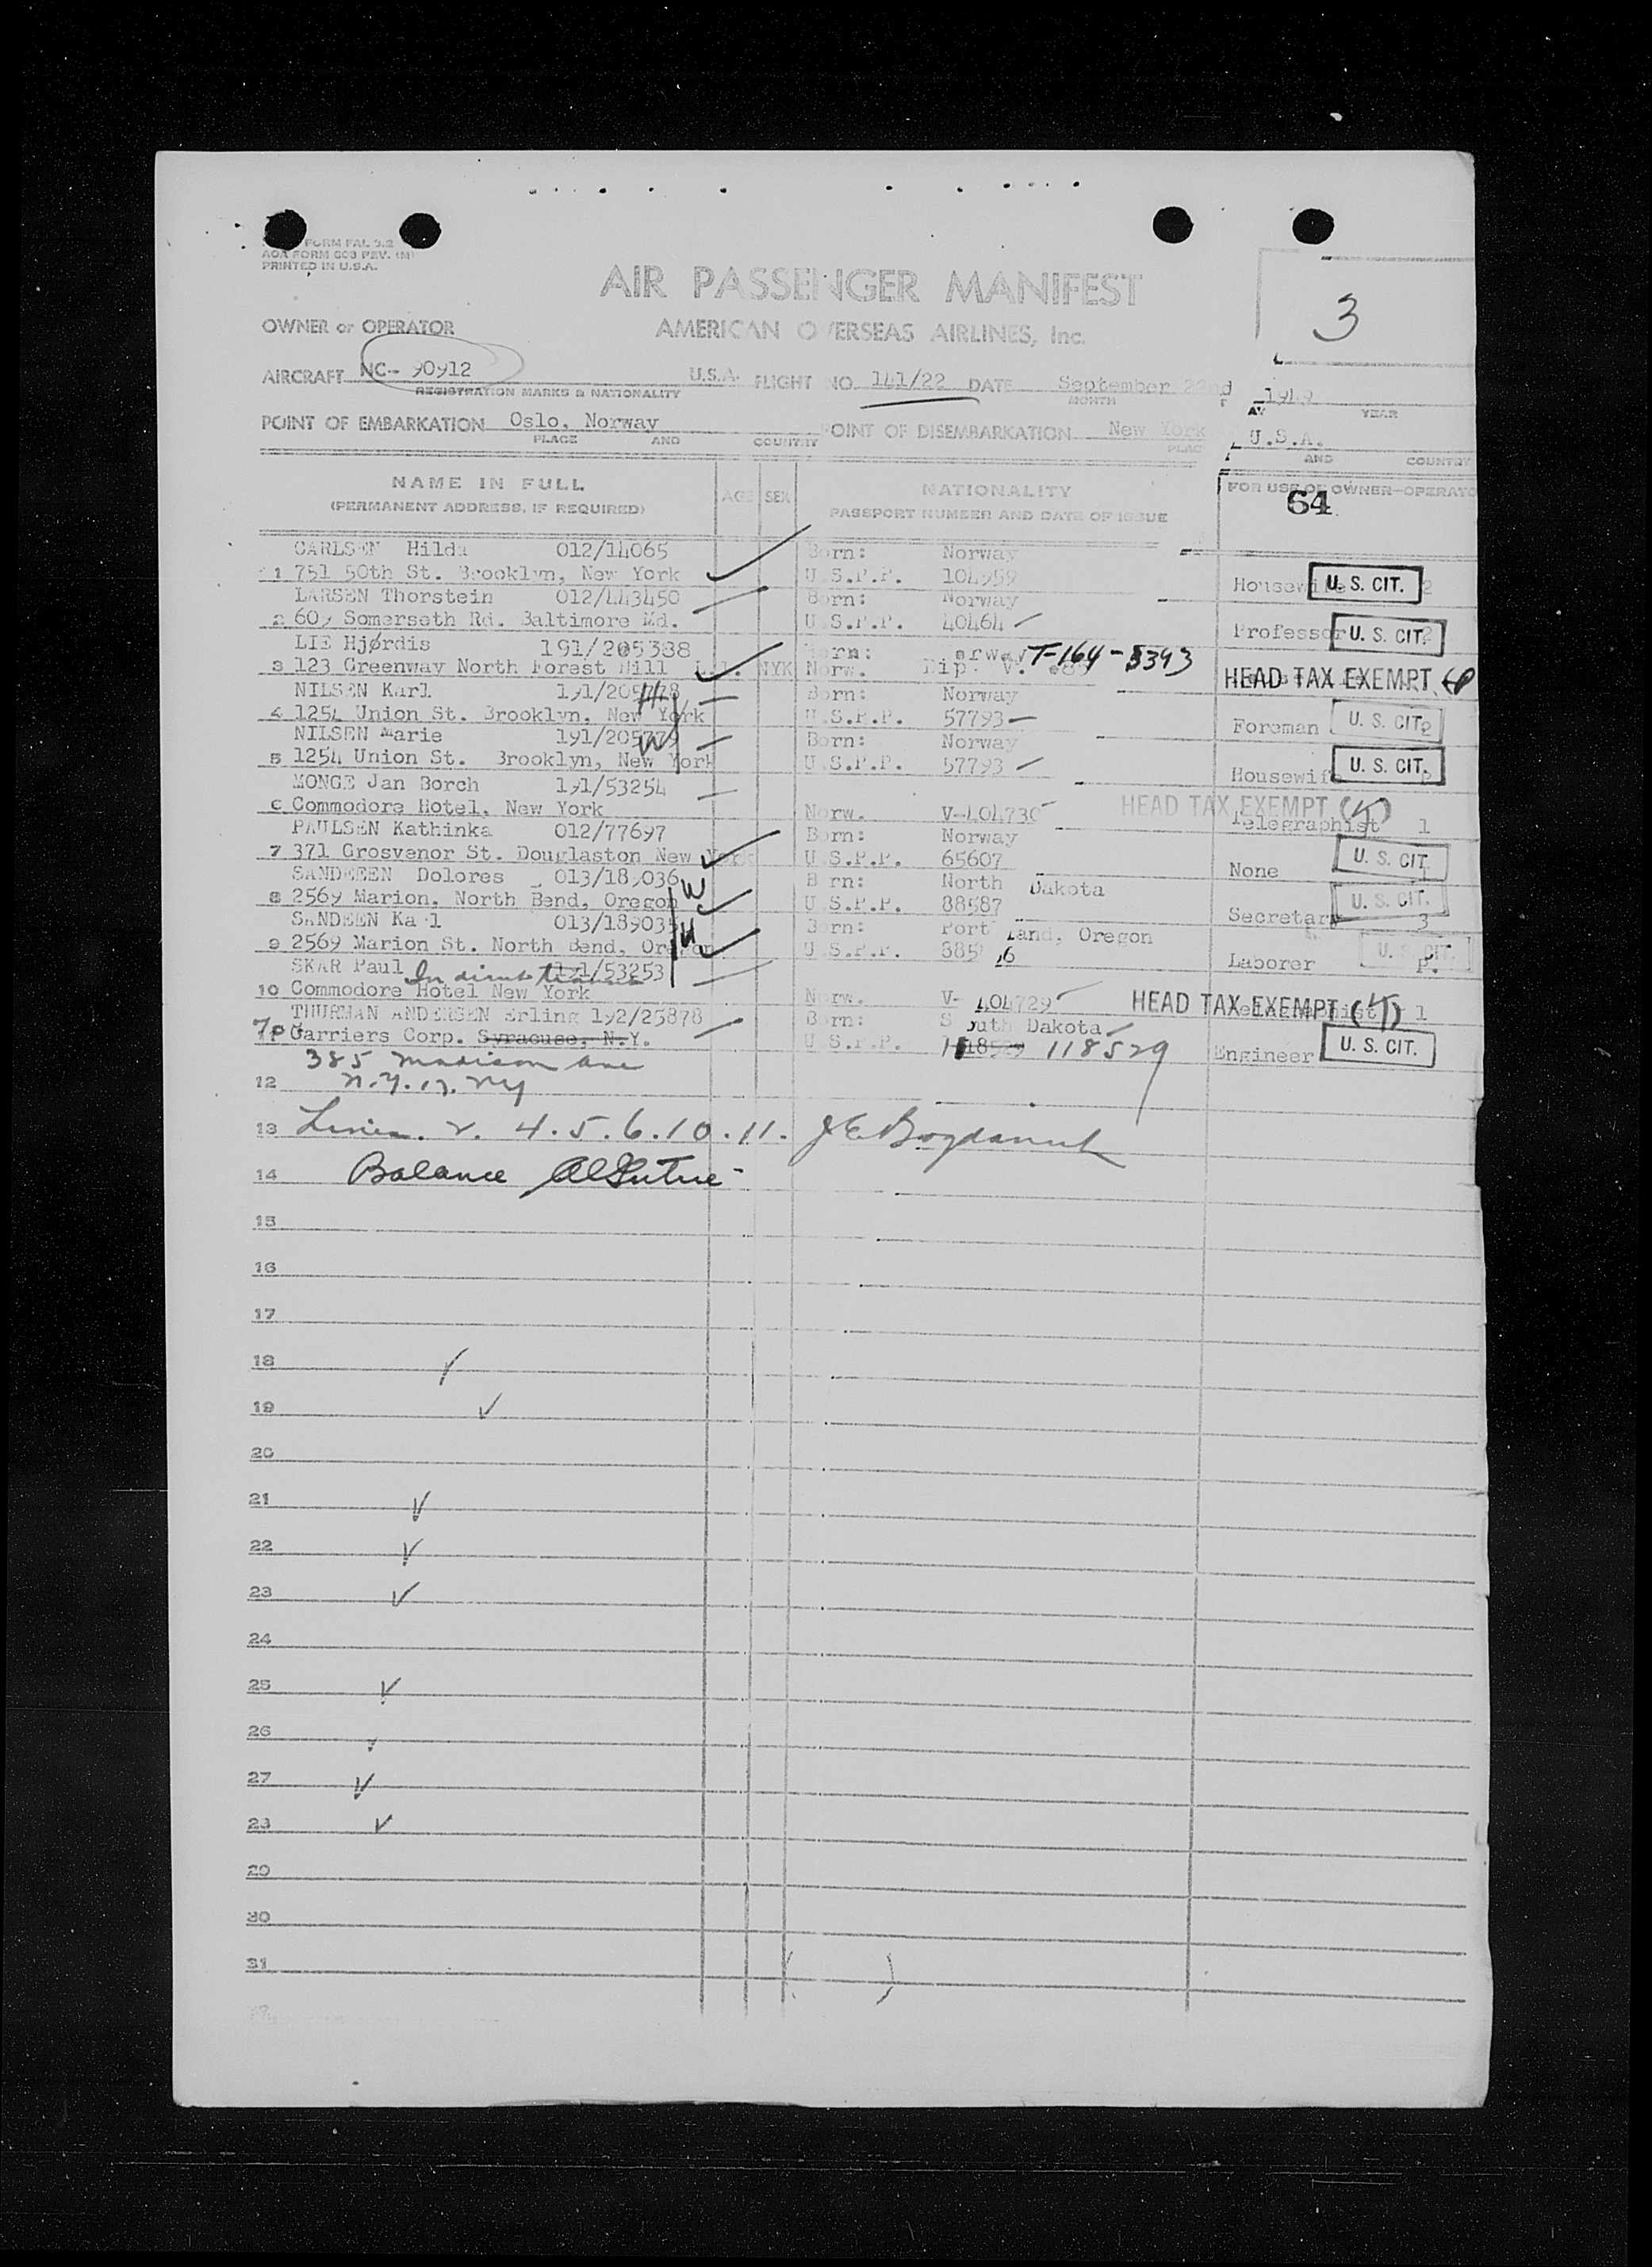 FORM FAL 3.2
AOA FORM 603 REV. (M)
PRINTED IN U.S.A.
AIR PASSENGER MANIFEST
3
OWNER or OPERATOR
AMERICAN OVERSEAS AIRLINES, Inc.
AIRCRAFT NC-- 90912 U.S.A. FLIGHT NO. 141/22 DATE September 22nd 1949
REGISTRATION MARKS & NATIONALITY MONTH DAY YEAR
POINT OF EMBARKATION Oslo, Norway POINT OF DISEMBARKATION New York U.S.A.
PLACE AND COUNTRY PLACE AND COUNTRY
NAME IN FULL AGE SEX NATIONALITY FOR USE OF OWNER-OPERATOR
(PERMANENT ADDRESS, IF REQUIRED) PASSPORT NUMBER AND DATE OF ISSUE 64
CARLSEN Hilda 012/14065 Born: Norway
1 751 50th St. Brooklyn, New York U.S.P.P. 104959 Housewife U. S. CIT. 2
LARSEN Thorstein 012/443450 Born: Norway
2 609 Somerseth Rd. Baltimore Md. U.S.P.P. 40464 Professor U. S. CIT. 2
LIE Hjørdis 191/205388 Born: Norway T-164-8343
3 123 Greenway North Forest Hill L.I. NYK Norw. Dip. V. HEAD TAX EXEMPT
NILSEN Karl 191/205778 H Born: Norway
4 1254 Union St. Brooklyn, New York U.S.P.P. 57793 Foreman U. S. CIT. 2
NILSEN Marie 191/205779 W Born: Norway
5 1254 Union St. Brooklyn, New York U.S.P.P. 57793 Housewife U. S. CIT.
MONGE Jan Borch 191/53254
6 Commodore Hotel, New York Norw. V-404730 HEAD TAX EXEMPT Telegraphist 1
PAULSEN Kathinka 012/77697 Born: Norway
7 371 Grosvenor St. Douglaston New York U.S.P.P. 65607 None U. S. CIT. 1
SANDEEEN Dolores 013/189036 W Born: North Dakota
8 2569 Marion, North Bend, Oregon U.S.P.P. 88587 Secretary U. S. CIT. 3
SANDEEN Karl 013/189035 H Born: Portland, Oregon
9 2569 Marion St. North Bend, Oregon U.S.P.P. Laborer U. S. CIT. P.
SKAR Paul In direct transit 191/53253
10 Commodore Hotel New York Norw. V-404729 HEAD TAX EXEMPT Telegraphist 1
THURMAN ANDERSEN Erling 192/25878 Born: South Dakota
Carriers Corp. Syracuse, N.Y. U.S.P.P. 118529 118529 Engineer U. S. CIT.
385 Madison Ave
12 N.Y. 17. NY
13 Lines. 2. 4. 5. 6. 10. 11.
14 Balance
15
16
17
18
19
20
21
22
23
24
25
26
27
28
29
30
31